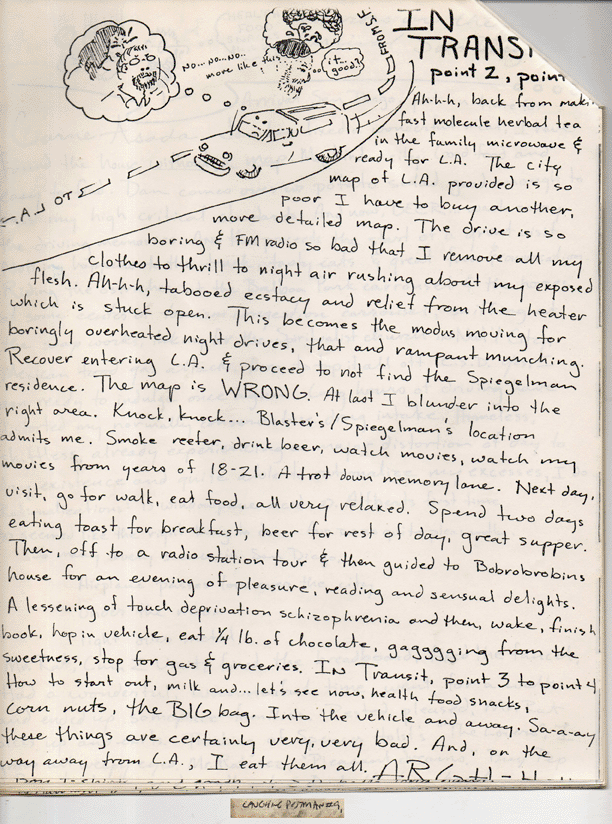 IN
TRANSI
point 2, poin
NO...NO..NO..
more like this!
it...
good?
FROM S.F.
L.A. OT
Ah-h-h, back from makin
fast molecule herbal tea
in the family microwave &
ready for L.A. The city
map of L.A. provided is so
poor I have to buy another,
more detailed map. The drive is so
boring & FM radio so bad that I remove all my
clothes to thrill to night air rushing about my exposed
flesh. Ah-h-h, tabooed ecstacy and relief from the heater
which is stuck open. This becomes the modus moving for
boringly overheated night drives, that and rampant munching.
Recover entering L.A. & proceed to not find the Spiegelman
residence. The map is WRONG. At last I blunder into the
right area. Knock, knock... Blaster's/Spiegelman's location
admits me. Smoke reefer, drink beer, watch movies, watch my
movies from years of 18-21. A trot down memory lane. Next day,
visit, go for walk, eat food, all very relaxed. Spend two days
eating toast for breakfast, beer for rest of day, great supper.
Then, off to a radio station tour & then guided to Bobrobrobins
house for an evening of pleasure, reading and sensual delights.
A lessening of touch deprivation schizophrenia and then, wake, finish
book, hop in vehicle, eat 1/4 lb. of chocolate, gagggging from the
sweetness, stop for gas & groceries. IN Transit, point 3 to point 4
How to start out, milk and... let's see now, health food snacks,
corn nuts, the BIG bag. Into the vehicle and away. Sa-a-ay
these things are certainly very, very bad. And, on the
way away from L.A., I eat them all.